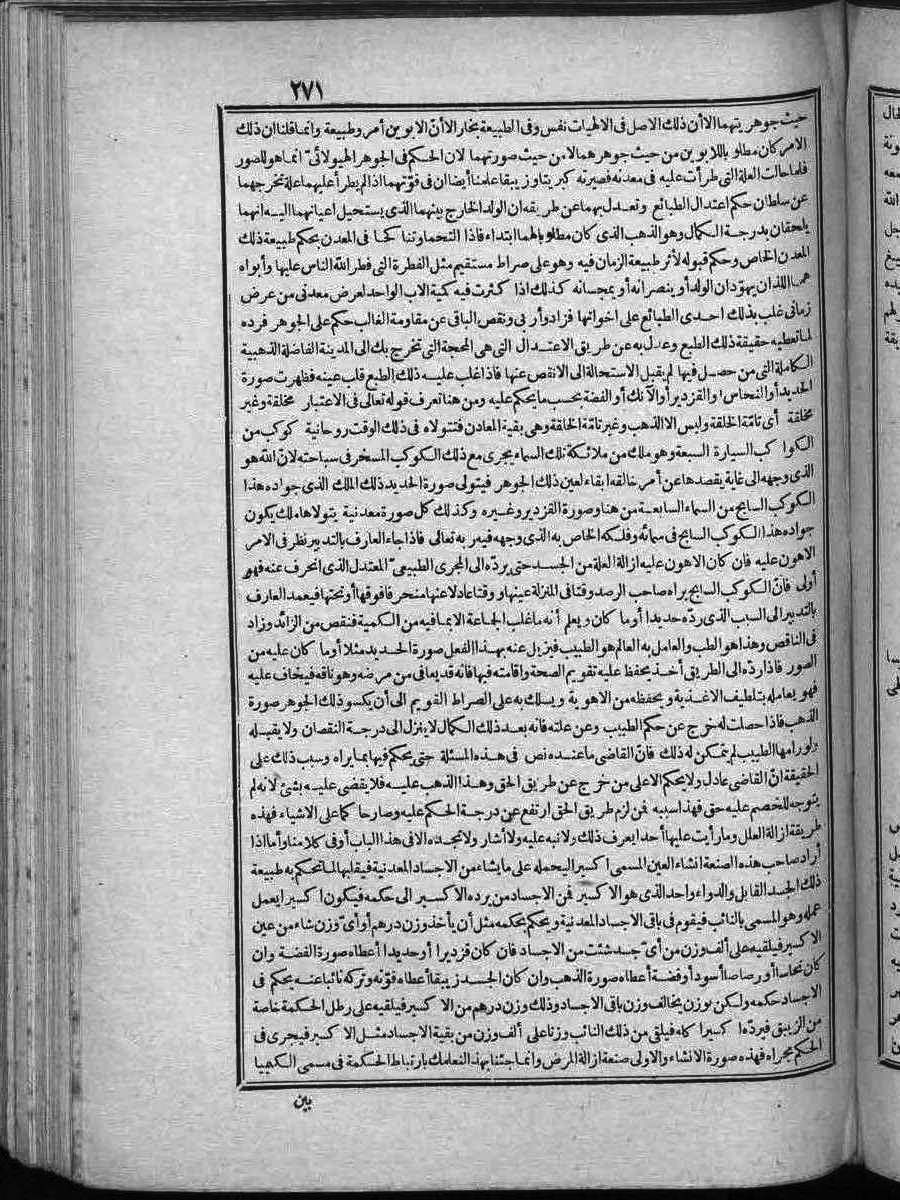 ٢٧١
حيث جوهريتهما الا أن ذلك الاصل فى الالهيات نفس وفى الطبيعة بخار الا أن الابوين أمر وطبيعة وانما قلنا ان ذلك
الامر كان مطلوبا للابوين من حيث جوهرهما لا من حيث صورتهما لان الحكم فى الجوهر الهيولائى انما هو للصور
فلما حالت العلة التى طرأت عليه فى معدنه فصيرته كبريتا وزيبقا علمنا أيضا ان فى قوتهما اذا لم يطرأ عليهما علة تخرجهما
عن سلطان حكم اعتدال الطبائع وتعدل بهما عن طريقه ان الولد الخارج بينهما الذى يستحيل اعيانهما اليه انهما
يلحقان بدرجة الكمال وهو الذهب الذى كان مطلوبا لهما ابتداء فاذا التحما وتناكحا فى المعدن بحكم طبيعة ذلك
المعدن الخاص وحكم قبوله لأثر طبيعة الزمان فيه وهو على صراط مستقيم مثل الفطرة التى فطر الله الناس عليها وأبواه
هما اللذان يهوّدان الولد أو ينصرانه أو يمجسانه كذلك اذا كثرت فيه كمية الاب الواحد لعرض معدنى من عرض
زمانى غلب بذلك احدى الطبائع على اخواتها فزاد وأربى ونقص الباقى عن مقاومة الغالب حكم على الجوهر فرده
لما تعطيه حقيقة ذلك الطبع وعدل به عن طريق الاعتدال التى هى المحجة التى تخرج بك الى المدينة الفاضلة الذهبية
الكاملة التى من حصل فيها لم يقبل الاستحالة الى الانقص عنها فاذا غلب عليه ذلك الطبع قلب عينه فظهرت صورة
الحديد أو النحاس أو القزدير أو الآنك أو الفضة بحسب ما يحكم عليه ومن هنا تعرف قوله تعالى فى الاعتبار مخلقة وغير
مخلقة أى تامّة الخلقة وليس الا الذهب وغير تامّة الخلقة وهى بقية المعادن فتتولاه فى ذلك الوقت روحانية كوكب من
الكواكب السيارة السبعة وهو ملك من ملائكة تلك السماء يجرى مع ذلك الكوكب المسخر فى سباحته لان الله هو
الذى وجهه الى غاية يقصدها عن أمر خالقه ابقاء لعين ذلك الجوهر فيتولى صورة الحديد ذلك الملك الذى جواده هذا
الكوكب السابح من السماء السابعة من هنا وصورة القزدير وغيره وكذلك كل صورة معدنية يتولاها ملك يكون
جواده هذا الكوكب السابح فى سمائه وفلكه الخاص به الذى وجهه فيه ربه تعالى فاذا جاء العارف بالتدبير نظر فى الامر
الاهون عليه فان كان الاهون عليه ازالة العلة من الجسد حتى يردّه الى المجرى الطبيعى المعتدل الذى انحرف عنه فهو
أولى فان الكوكب السابح يراه صاحب الرصد وقتا فى المنزلة عينها ووقتا عادلا عنها منحرفا فوقها أو تحتها فيعمد العارف
بالتدبير الى السبب الذى ردّه حديدا أو ما كان ويعلم أنه ما غلب الجماعة الا بما فيه من الكمية فنقص من الزائد وزاد
فى الناقص وهذا هو الطب والعامل به العالم هو الطبيب فيزيل عنه بهذا الفعل صورة الحديد مثلا أو ما كان عليه من
الصور فاذا ردّه الى الطريق أخذ يحفظ عليه تقويم الصحة واقامته فيها فانه قد يعافى من مرضه وهو ناقه فيخاف عليه
فهو يعامله بتلطيف الاغذية ويحفظه من الاهوية ويسلك به على الصراط القويم الى أن يكسو ذلك الجوهر صورة
الذهب فاذا حصلت له خرج عن حكم الطبيب وعن علته فانه بعد ذلك الكمال لا ينزل الى درجة النقصان ولا يقبله
ولو رامها الطبيب لم يتمكن له ذلك فان القاضى ما عنده نص فى هذه المسئلة حتى يحكم فيها بما يراه وسبب ذلك على
الحقيقة ان القاضى عادل ولا يحكم الا على من خرج عن طريق الحق وهذا الذهب عليه فلا يقضى عليه بشئ لانه لم
يتوجه للخصم عليه حق فهذا سببه فمن لزم طريق الحق ارتفع عن درجة الحكم عليه وصار حاكما على الاشياء فهذه
طريقة ازالة العلل وما رأيت عليها أحدا يعرف ذلك ولا نبه عليه ولا أشار ولا تجده الا فى هذا الباب أو فى كلامنا وأما اذا
أراد صاحب هذه الصنعة انشاء العين المسمى اكسيرا ليحمله على ما يشاء من الاجساد المعدنية فيقلبها لما تحكم به طبيعة
ذلك الجسد القابل والدواء واحد الذى هو الاكسير فمن الاجساد من يرده الاكسير الى حكمه فيكون اكسيرا يعمل
عمله وهو المسمى بالنائب فيقوم فى باقى الاجساد المعدنية ويحكم بحكمه مثل أن يأخذ وزن درهم أو أى وزن شاء من عين
الاكسير فيلقيه على ألف وزن من أى جسد شئت من الاجساد فان كان قزديرا أو حديدا أعطاه صورة الفضة وان
كان نحاسا أو رصاصا أسود أو فضة أعطاه صورة الذهب وان كان الجسد زيبقا أعطاه قوّته وتركه نائبا عنه يحكم فى
الاجساد حكمه ولكن بوزن يخالف وزن باقى الاجساد وذلك وزن درهم من الاكسير فيلقيه على رطل الحكمة خاصة
من الزيبق فيردّه اكسيرا كله فيلقى من ذلك النائب وزنا على ألف وزن من بقية الاجساد مثل الاكسير فيجرى فى
الحكم مجراه فهذه صورة الانشاء والاولى صنعة ازالة المرض وانما جئنا بهذا لنعلمك بارتباط الحكمة فى مسمى الكيميا
بين